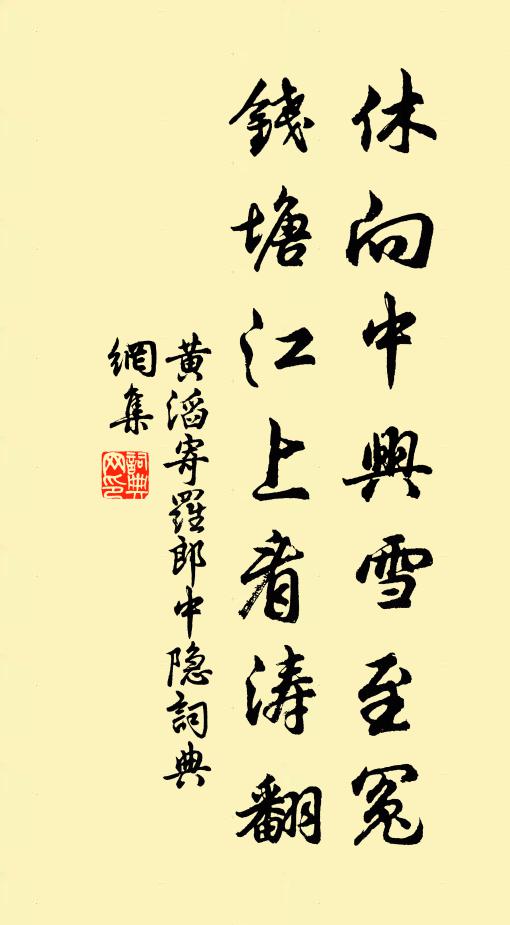 休向中興雪至冤
錢塘江上看濤翻
黃滔寄羅郎中隐詞典
網集
詞典網印